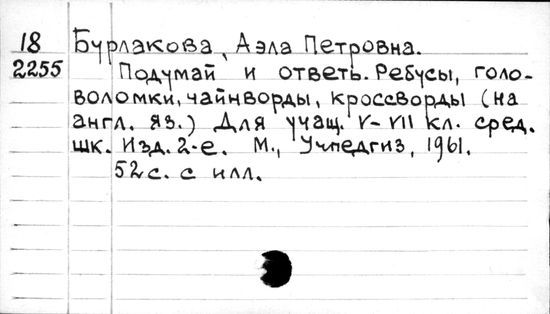 18 Бурлакова, Аэла Петровна.
2255 Подумай и ответь. Ребусы, голо-
воломки, чайнворды, кроссворды (на
англ. яз.) Для учащ. V-VII кл. сред.
шк. Изд. 2-е. М., Учпедгиз, 1961.
52 с. с илл.